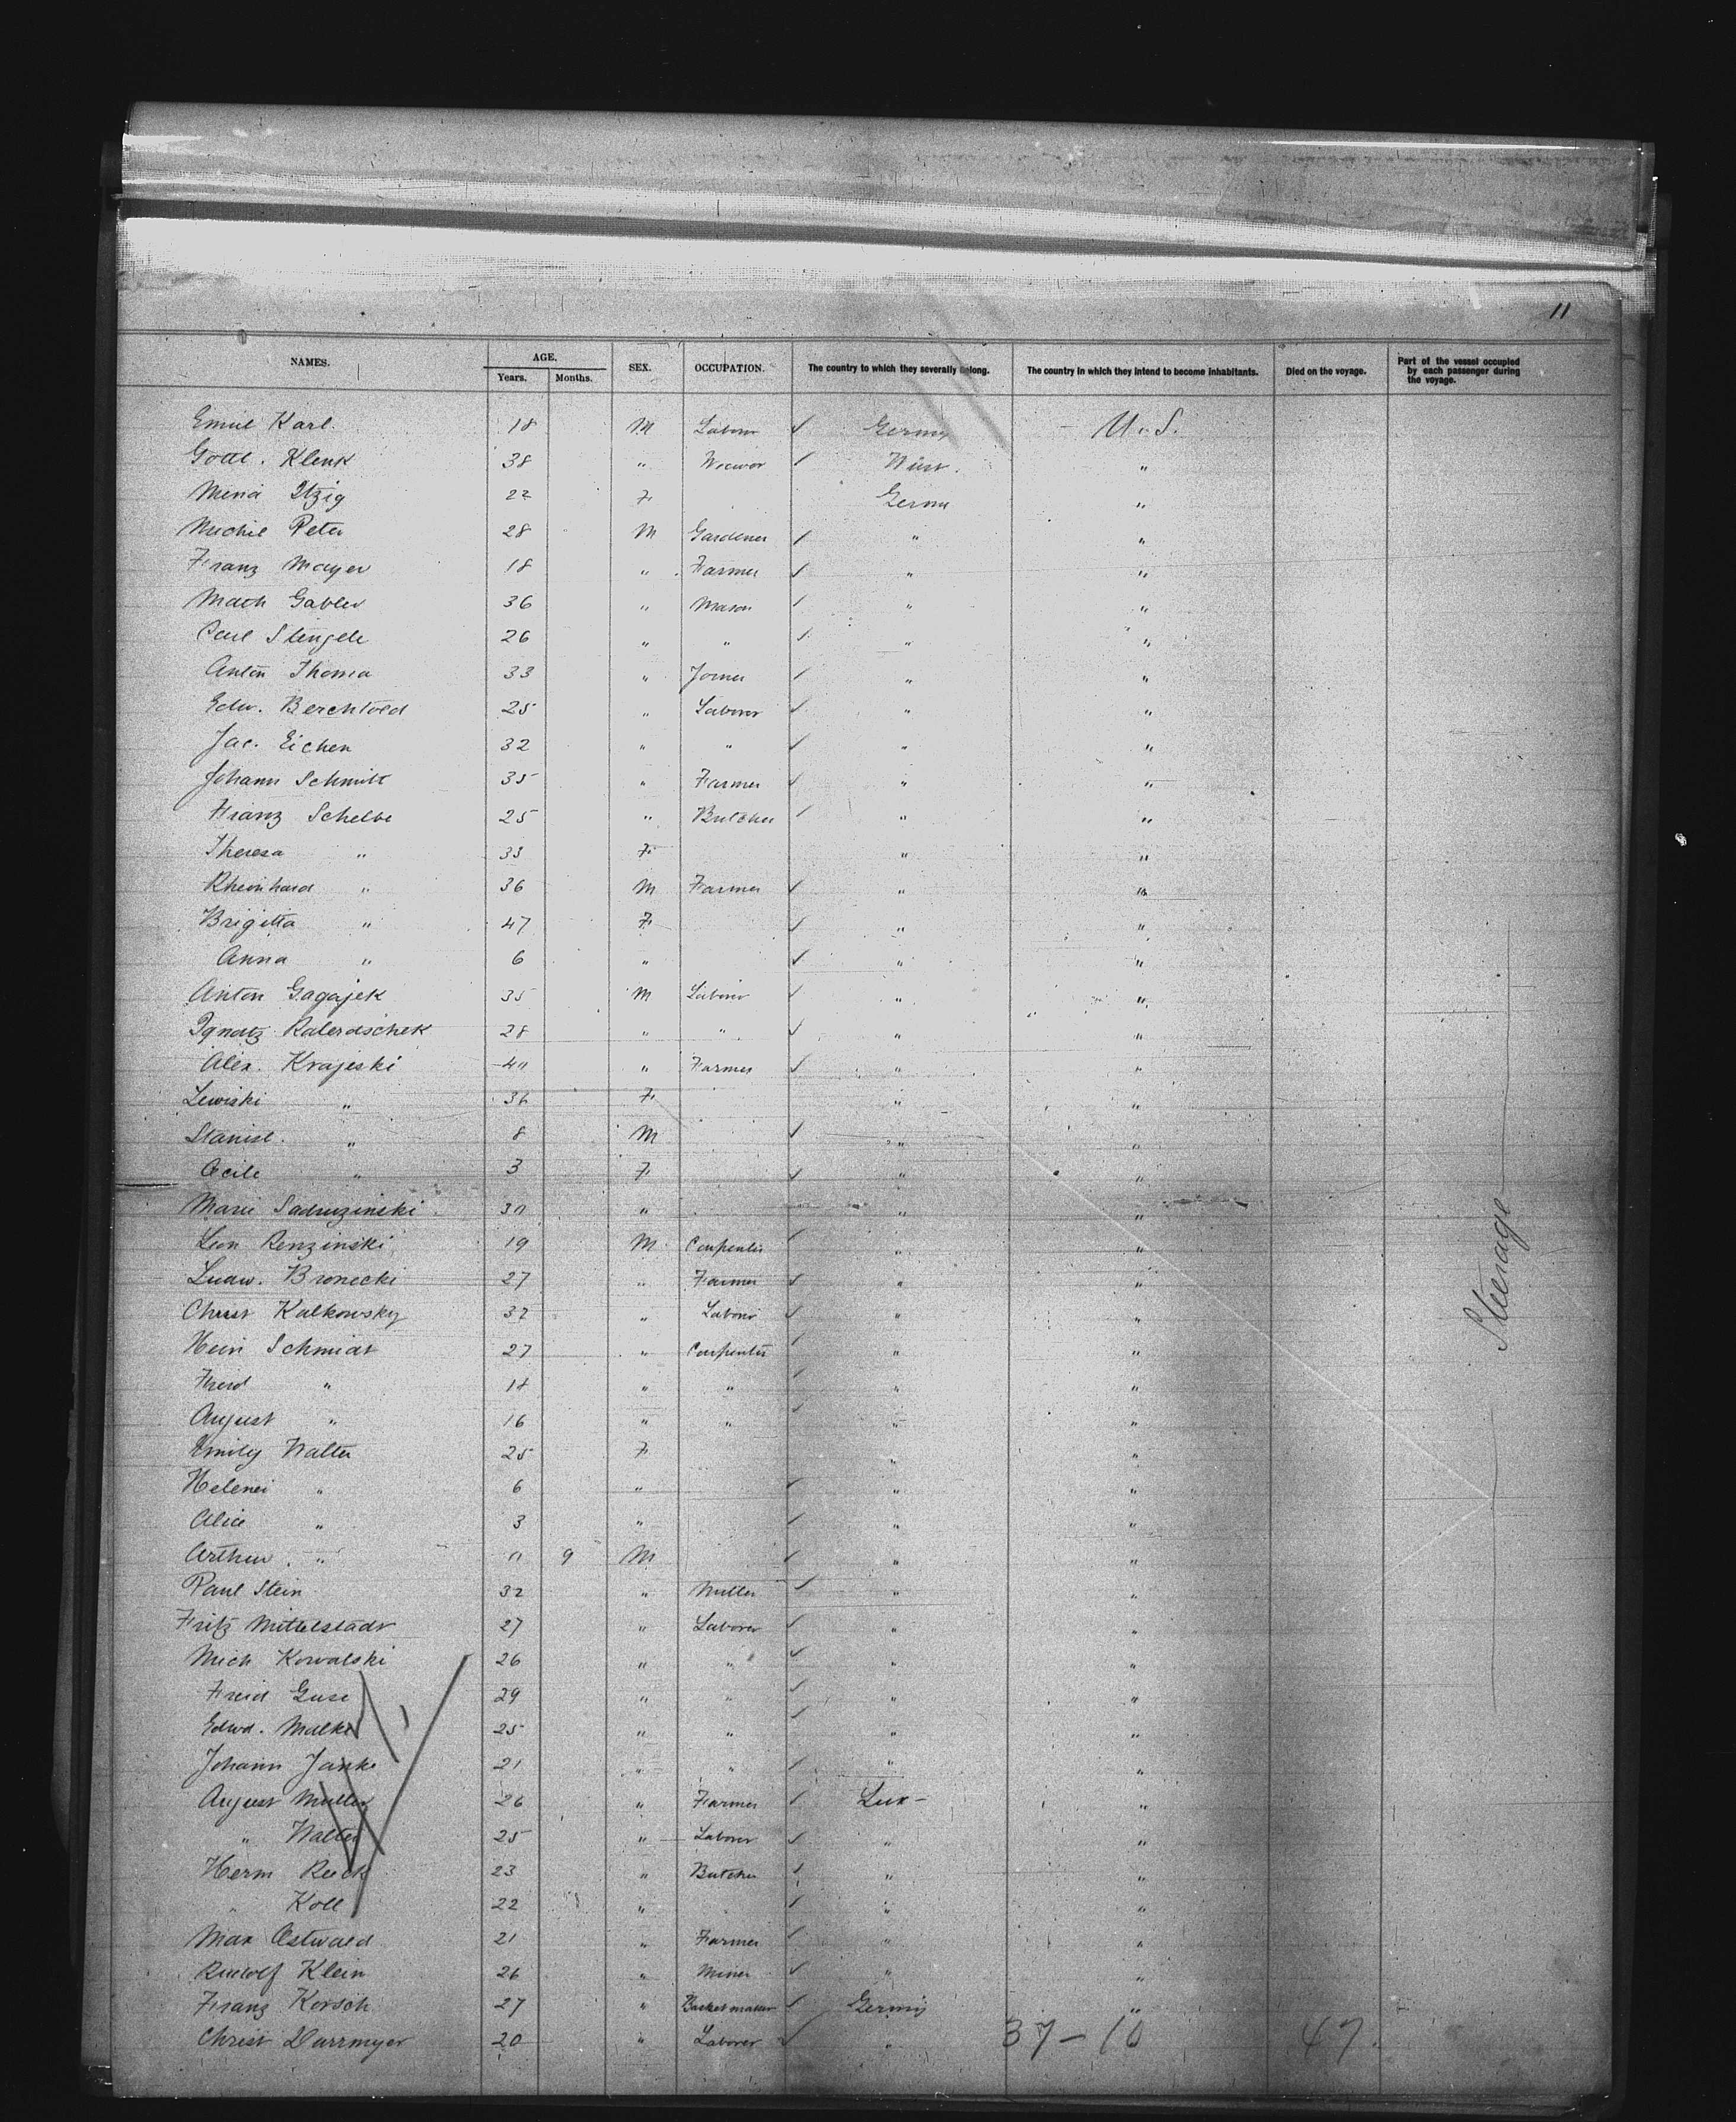 11
NAMES. AGE. Years. Months. SEX. OCCUPATION. The country to which they severally belong. The country in which they intend to become inhabitants. Died on the voyage. Part of the vessel occupied by each passenger during the voyage.
Emil Karl. 18 M Laborer ✓ Germy U. S.
Gottl. Klenk 38 " ✓ Würt. "
Mina Itzig 22 F Germa "
Michil Peter 28 M Gardener ✓ " "
Franz Mayer 18 " Farmer ✓ " "
Math Gabler 36 " Mason ✓ " "
Paul Stengele 26 " " ✓ " "
Anton Thoma 33 " Joiner ✓ " "
Edw. Berchtold 25 " Laborer ✓ " "
Jac. Eichen 32 " " ✓ " "
Johann Schmitt 35 " Farmer ✓ " "
Franz Schelbe 25 " Butcher ✓ " "
Theresa " 33 F " "
Rheinhard " 36 M Farmer ✓ " "
Brigitta " 47 F ✓ " "
Anna " 6 " ✓ " "
Anton Gagajek 35 M Laborer ✓ " "
Ignatz 28 " " ✓ " "
Alex. Krajeski 40 " Farmer ✓ " "
Lewiski " 36 F " "
Stanisl. " 8 M ✓ " "
Cecile " 3 F ✓ " "
Marie 30 " " "
Leon Renzinski 19 M Carpenter ✓ " "
Ludw. Bronecki 27 " Farmer ✓ " "
Christ Kalkowsky 32 " Laborer ✓ " "
Hein Schmidt 27 " Carpenter ✓ " "
Fried " 18 " " ✓ " "
August " 16 " " ✓ " "
Emily Walter 25 F " "
Helene " 6 " ✓ " "
Alice " 3 " ✓ " "
Arthur " 0 9 M ✓ " "
Paul Stein 32 " Miller ✓ " "
Fritz Mittelstädt 27 " Laborer ✓ " "
Mich Kowalski 26 " " ✓ " "
Freid Guse 29 " " ✓ " "
Edwd. Malke 25 " " ✓ " "
Johann Janke 21 " " ✓ " "
August Muller 26 " Farmer ✓ Lux- "
" Walter 25 " Laborer ✓ " "
Herm Reeck 23 " Butcher ✓ " "
" Koll 22 " ✓ " "
Max Ostwald 21 " Farmer ✓ " "
Rudolf Klein 26 " Miner ✓ " "
Franz Korsch 27 " Basketmaker ✓ Germy "
Christ Darrmyer 20 " Laborer ✓ " 37-10 47.
Steerage